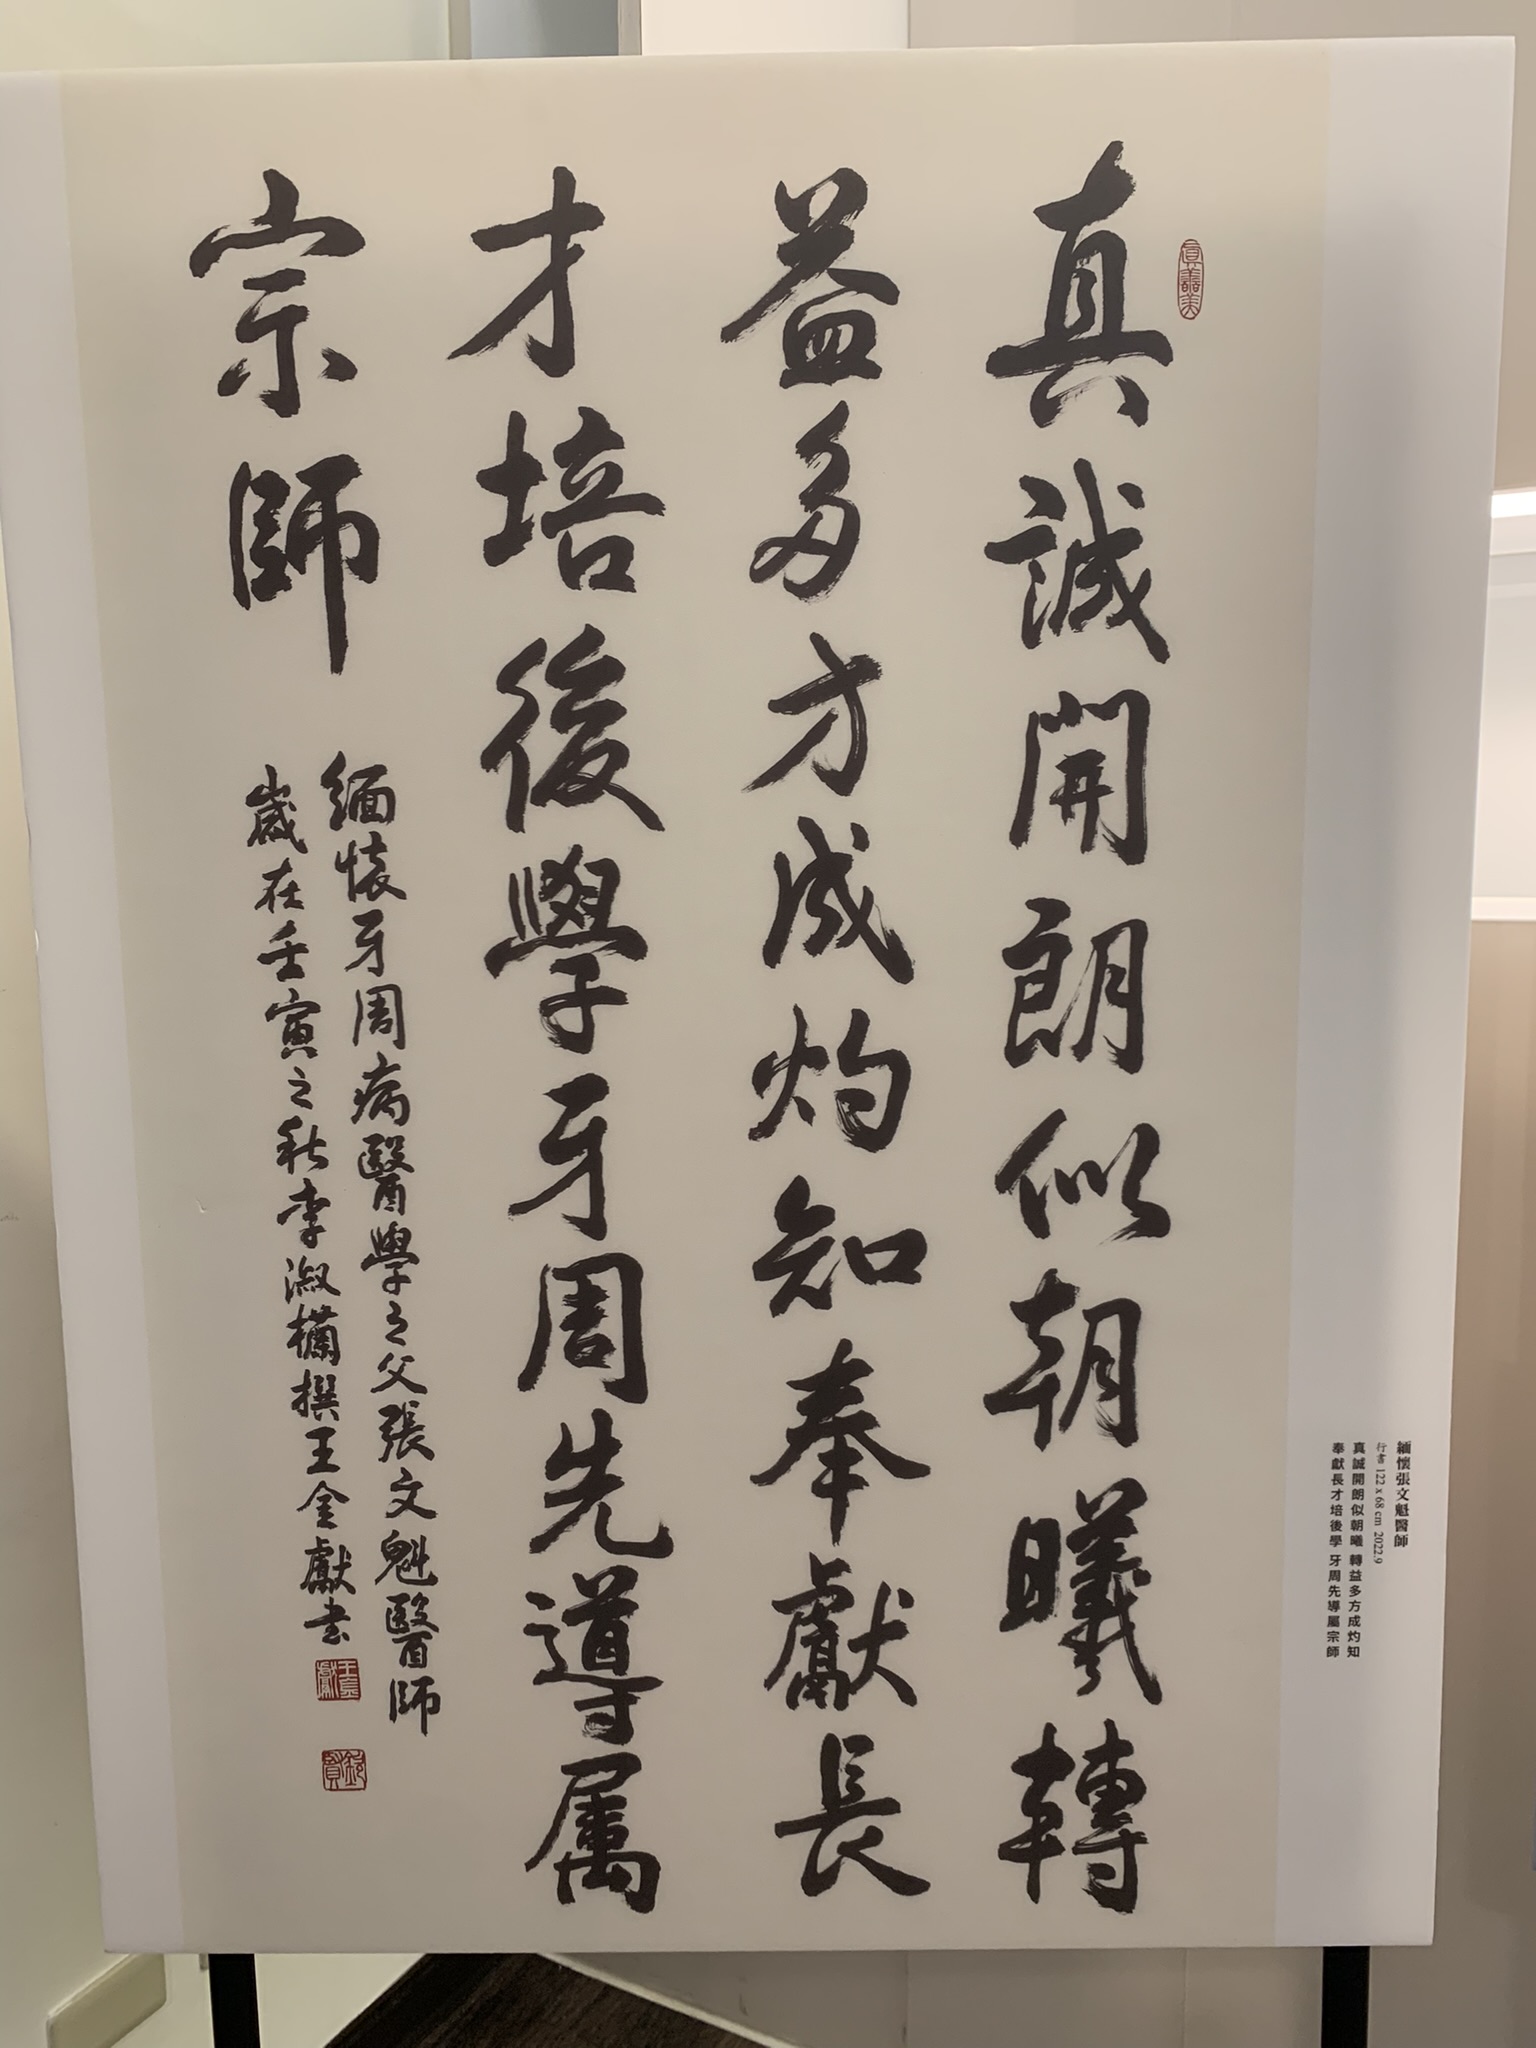 緬懷張文魁醫師
行書 122 x 68 cm 2022.9
真誠開朗似朝曦 轉益多方成灼知
奉獻長才培後學 牙周先導屬宗師
真善美
真誠開朗似朝曦轉
益多方成灼知奉獻長
才培後學牙周先導属
宗師
緬懷牙周病醫學之父張文魁醫師
歲在壬寅之秋李淑櫹撰王金獻書